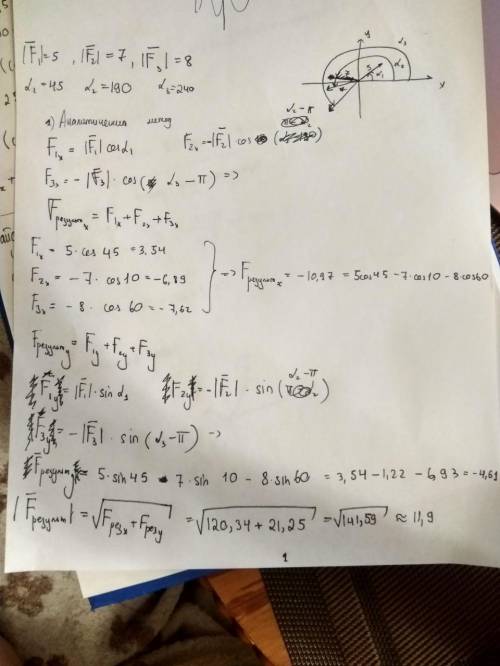 |F̅₁|=5 , |F̅₂|=7 , |F̅₃|=8
α₁=45 α₂=190 α₃=240
y
x
α₃
α₂
α₁
5
7
8
1) Аналитический метод
F₁ₓ = |F̅₁| cosα₁ F₂ₓ=-|F̅₂| cos (α₂-π)
F₃ₓ = -|F̅₃|· cos( α₃-π) =>
F̅результₓ = F₁ₓ+F₂ₓ+F₃ₓ
F₁ₓ = 5·cos 45 =3,54
F₂ₓ = -7·cos10 =-6,89
F₃ₓ = -8· cos 60 = -7,62
=> Fрезультₓ = -10,97 = 5cos45-7·cos10-8·cos60
Fрезульт y = F₁y+F₂y+F₃y
F₁y = |F̅₁|·sin α₁ F₂y=-|F̅₂|· sin(α₂-π)
F₃y = -|F̅₃|· sin(α₃-π) =>
F̅результ y = 5·sin45 - 7·sin 10 - 8·sin60 = 3,54-1,22-6,93=-4,61
|F̅результ| = √Fрезₓ+Fрезy = √120,34+21,25 = √141,59 ≈ 11,9
1